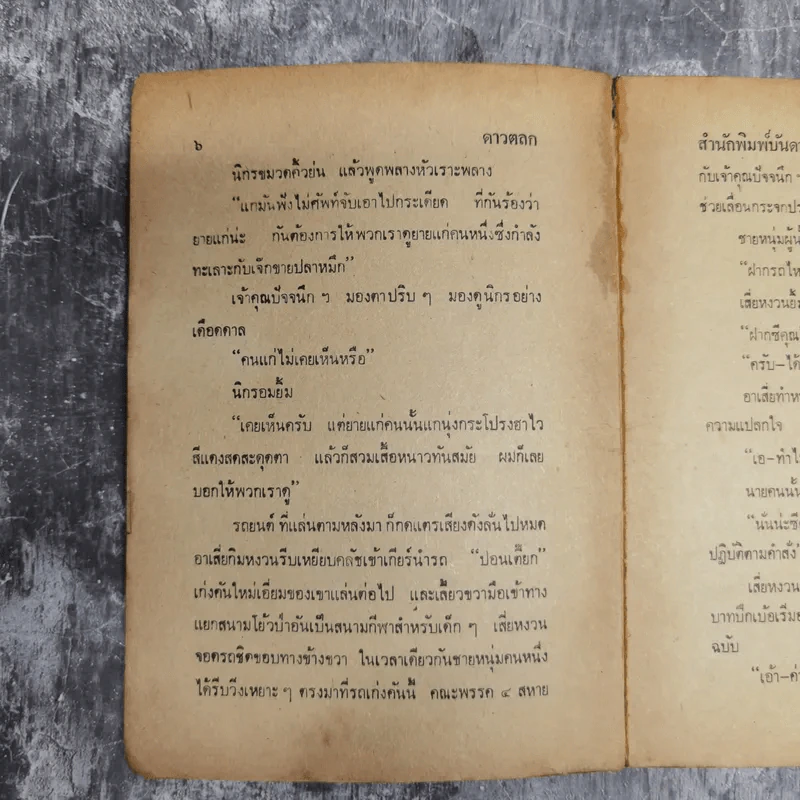 ๖
ดาวตลก
นิกรขมวดคิ้วย่น แล้วพูดพลางหัวเราะพลาง
“แกมันฟังไม่ศัพท์จับเอาไปกระเดียด ที่กันร้องว่า
ยายแก่น่ะ กันต้องการให้พวกเราดูยายแก่คนหนึ่งซึ่งกำลัง
ทะเลาะกับเจ๊กขายปลาหมึก”
เจ้าคุณปัจจนึก ฯ มองตาปริบ ๆ มองดูนิกรอย่าง
เดือดดาล
“คนแก่ไม่เคยเห็นหรือ”
นิกรอมยิ้ม
“เคยเห็นครับ แต่ยายแก่คนนั้นแกนุ่งกระโปรงฮาไว
สีแดงสดสะดุดตา แล้วก็สวมเสื้อหนาวทันสมัย ผมก็เลย
บอกให้พวกเราดู”
รถยนต์ ที่แล่นตามหลังมา ก็กดแตรเสียงดังลั่นไปหมด
อาเสี่ยกิมหงวนรีบเหยียบคลัชเข้าเกียร์นำรถ “ปอนเตี๊ยก”
เก๋งคันใหม่เอี่ยมของเขาแล่นต่อไป และเลี้ยวขวามือเข้าทาง
แยกสนามโย้วป่ายอันเป็นสนามกีฬาสำหรับเด็ก ๆ เสี่ยหงวน
จอดรถชิดขอบทางข้างขวา ในเวลาเดียวกันชายหนุ่มคนหนึ่ง
ได้รีบวิ่งเหยาะ ๆ ตรงมาที่รถเก๋งคันนี้ คณะพรรค ๔ สหาย
สำนักพิมพ์บันดา
กับเจ้าคุณปัจจนึก ฯ
ช่วยเลื่อนกระจกประ
ชายหนุ่มผู้นั้
“ฝากรถไห
เสี่ยหงวนยิ้ม
“ฝากซีคุณ
“ครับ–ได้
อาเสี่ยทำห
ความแปลกใจ
“เอ–ทำไ
นายคนนั้น
“นั่นน่ะซี
ปฏิบัติตามคำสั่ง
เสี่ยหงวน
บาทปึกเบ้อเริ่ม
ฉบับ
“เอ้า–ค่า